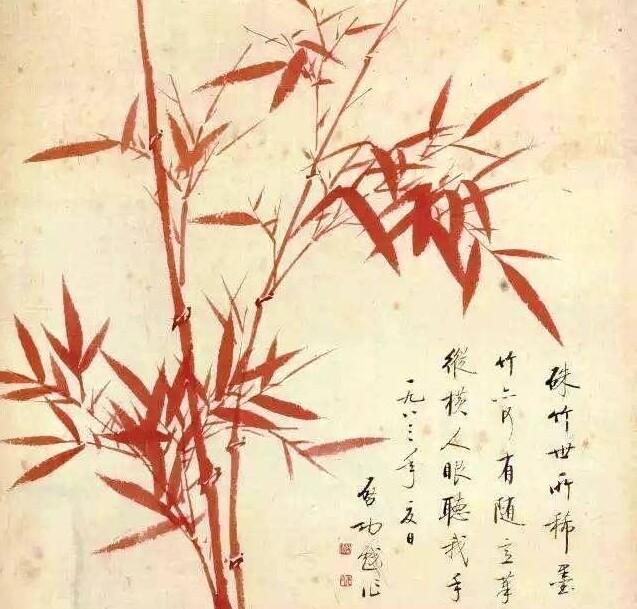 硃竹世所稀墨
竹亦何有随意筆
縱横人眼聽我手
一九八三年夏日
啓功戲作